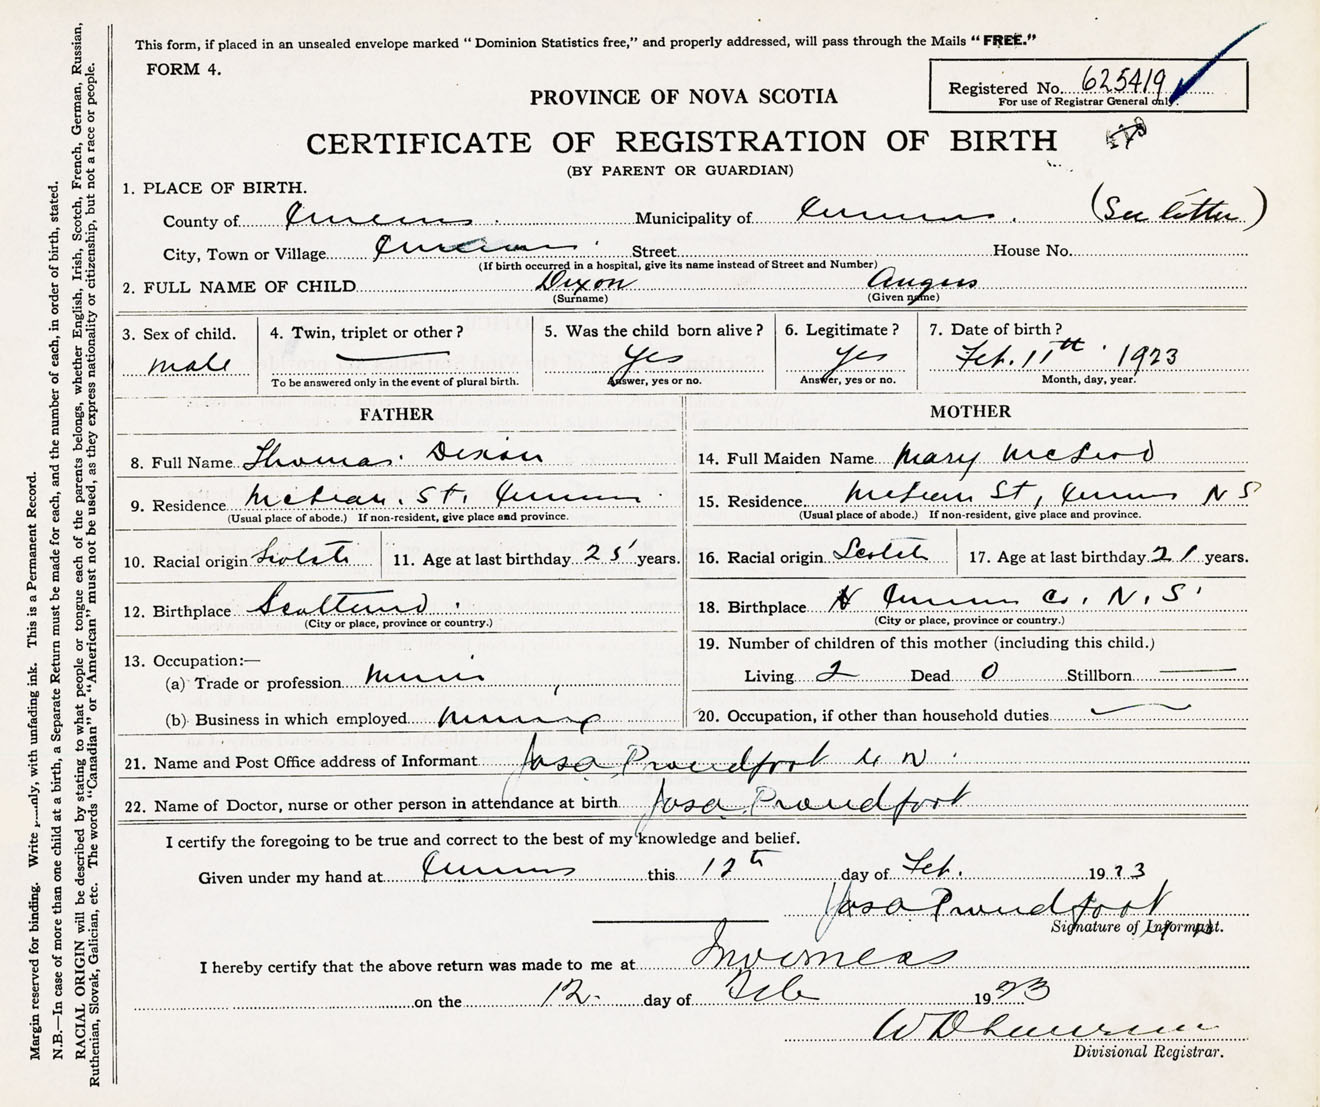 This form, if placed in an unsealed envelope marked "Dominion Statistics free," and properly addressed, will pass through the Mails "FREE."
FORM 4.
Registered No. 625419
For use of Registrar General only.
PROVINCE OF NOVA SCOTIA
CERTIFICATE OF REGISTRATION OF BIRTH
(BY PARENT OR GUARDIAN)
1. PLACE OF BIRTH.
County of Inverness Municipality of Inverness (See letter)
City, Town or Village Inverness Street House No.
(If birth occurred in a hospital, give its name instead of Street and Number)
2. FULL NAME OF CHILD Dixon Angus
(Surname) (Given name)
3. Sex of child. 4. Twin, triplet or other? 5. Was the child born alive? 6. Legitimate? 7. Date of birth?
male Yes Yes Feb. 11th 1923
To be answered only in the event of plural birth. Answer, yes or no. Answer, yes or no. Month, day, year.
FATHER MOTHER
8. Full Name Thomas Dixon 14. Full Maiden Name Mary McLeod
9. Residence McLean St, Inverness 15. Residence McLean St, Inverness N S
(Usual place of abode.) If non-resident, give place and province. (Usual place of abode.) If non-resident, give place and province.
10. Racial origin Scotch 11. Age at last birthday 25 years. 16. Racial origin Scotch 17. Age at last birthday 21 years.
12. Birthplace Scotland 18. Birthplace Inverness Co, N.S.
(City or place, province or country.) (City or place, province or country.)
19. Number of children of this mother (including this child.)
13. Occupation:—
(a) Trade or profession Miner Living 2 Dead 0 Stillborn
(b) Business in which employed Mining 20. Occupation, if other than household duties
21. Name and Post Office address of Informant Proudfoot
22. Name of Doctor, nurse or other person in attendance at birth Proudfoot
I certify the foregoing to be true and correct to the best of my knowledge and belief.
Given under my hand at Inverness this 12th day of Feb. 1923
Proudfoot
Signature of Informant.
I hereby certify that the above return was made to me at Inverness
on the 12 day of Feb 1923
Divisional Registrar.
Margin reserved for binding. Write with unfading ink. This is a Permanent Record.
N.B.—In case of more than one child at a birth, a Separate Return must be made for each, and the number of each, in order of birth, stated.
RACIAL ORIGIN will be described by stating to what people or tongue each of the parents belongs, whether English, Irish, Scotch, French, German, Russian,
Ruthenian, Slovak, Galician, etc. The words "Canadian" or "American" must not be used, as they express nationality or citizenship, but not a race or people.